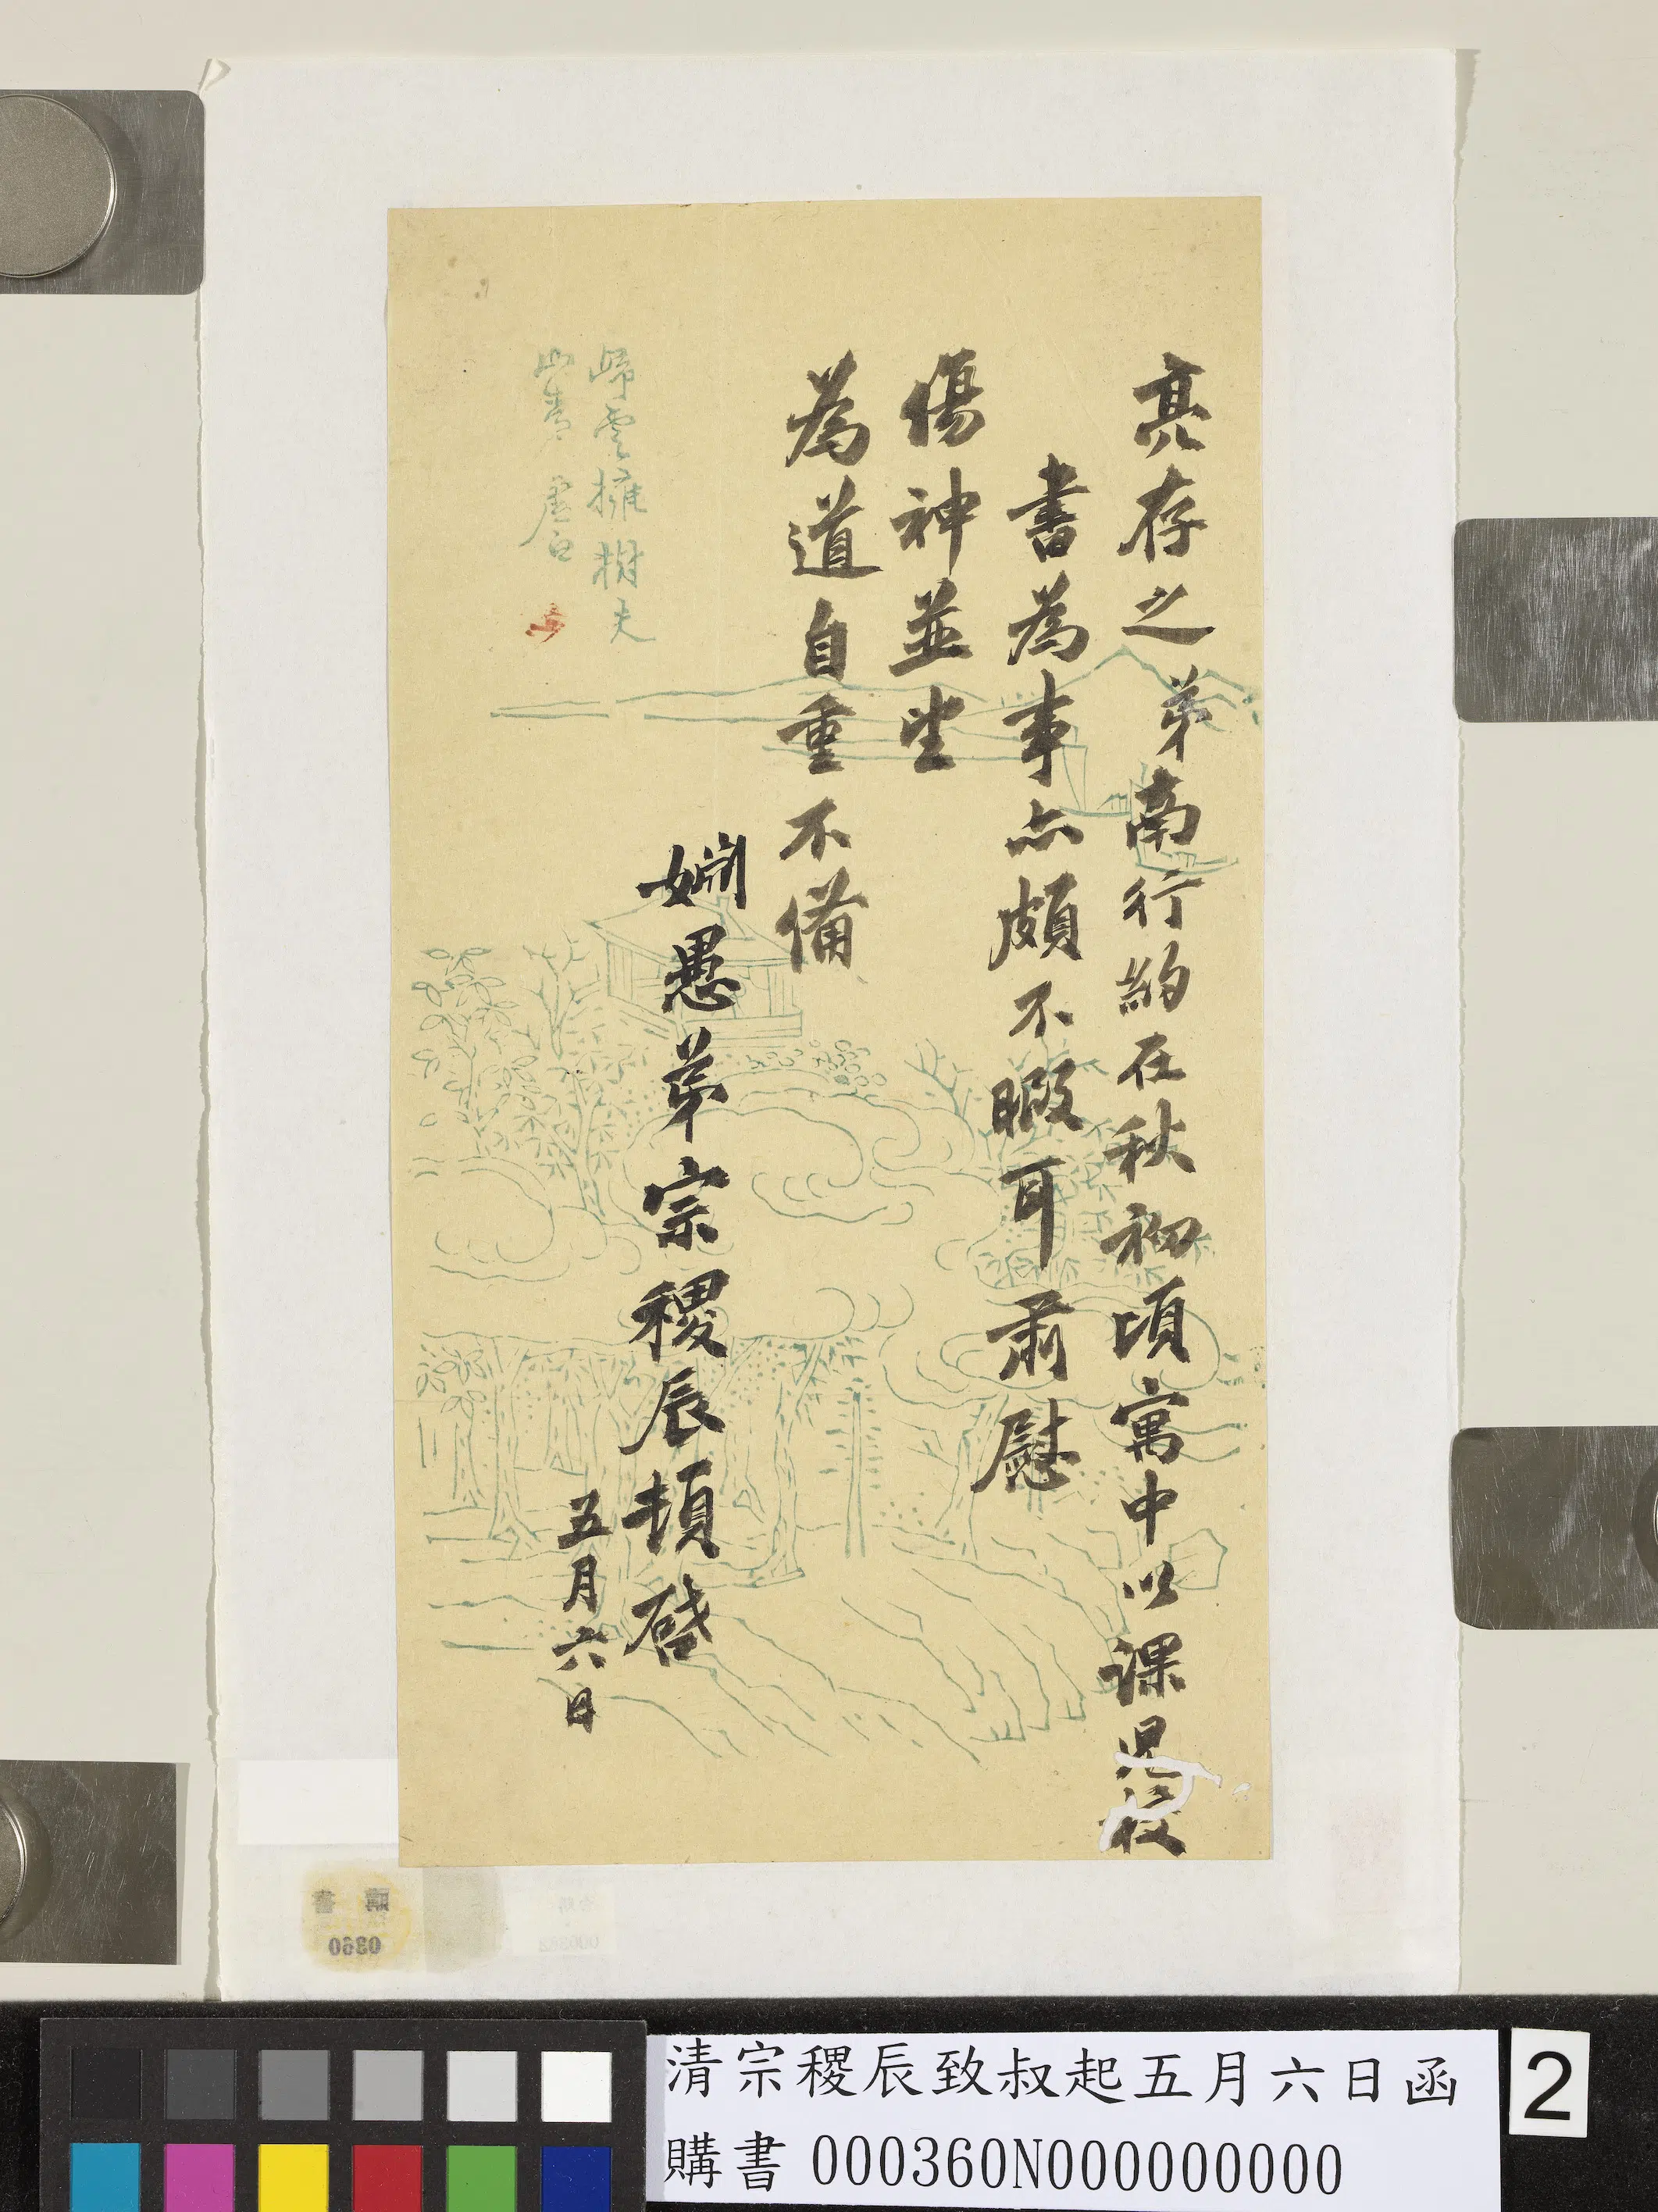 亮存之弟南行約在秋初頃寓中以課兒校
書為事亦頗不暇耳肅慰
傷神並望
為道自重不備
姻愚弟宗稷辰頓啓
五月六日
歸雲擁樹失
山邨 虛白
購書
0360
清宗稷辰致叔起五月六日函
購書 000360N000000000
2